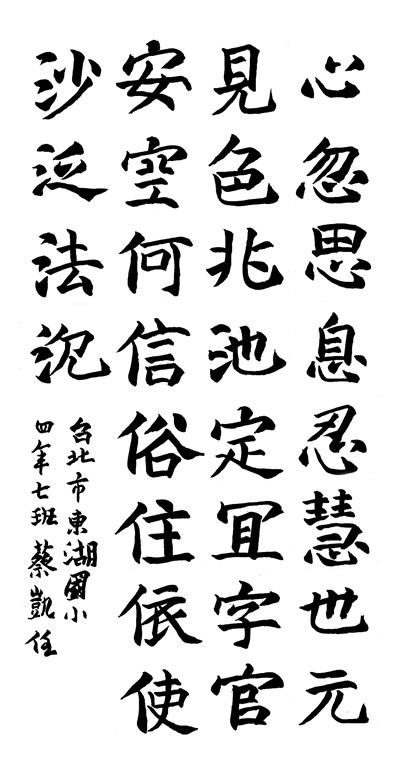 心忽思息忍慧也元
見色兆池定冝字官
安空何信俗住依使
沙泛法況
台北市東湖國小
四年七班蔡凱任